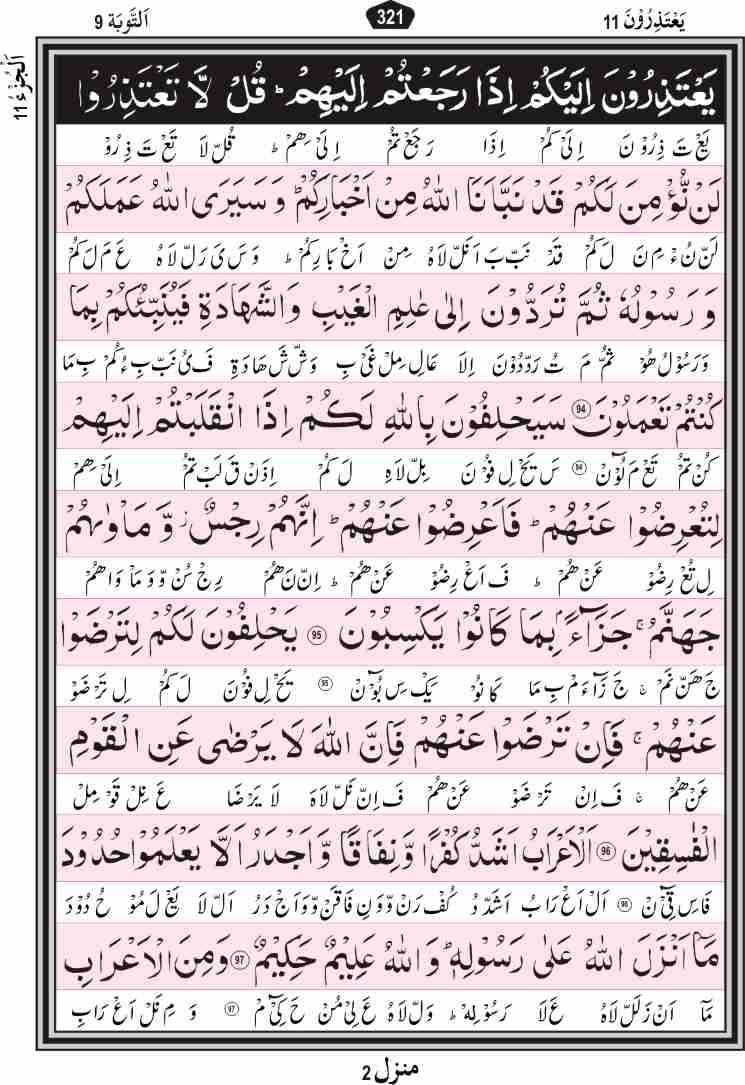 يَعْتَذِرُوْنَ 11
321
اَلتَّوْبَة 9
اَلْجُزْءُ 11
يَعْتَذِرُوْنَ اِلَيْكُمْ اِذَا رَجَعْتُمْ اِلَيْهِمْ ؕ قُلْ لَّا تَعْتَذِرُوْا
يَعْ تَ ذِرُوْ نَ اِلَىْ كُمْ اِذَا رَ جَعْ تُمْ اِلَىْ هِمْ ؕ قُلْ لَا تَعْ تَ ذِرُوْ
لَنْ نُّؤْمِنَ لَكُمْ قَدْ نَبَّاَنَا اللّٰهُ مِنْ اَخْبَارِكُمْ ؕ وَ سَيَرَى اللّٰهُ عَمَلَكُمْ
لَنْ نُءْ مِ نَ لَ كُمْ قَدْ نَبْ بَ اَ نَلْ لَاهُ مِنْ اَخْ بَا رِ كُمْ ؕ وَ سَ ىَ رَلْ لَا هُ عَ مَ لَ كُمْ
وَ رَسُوْلُهٗ ثُمَّ تُرَدُّوْنَ اِلٰى عٰلِمِ الْغَيْبِ وَالشَّهَادَةِ فَيُنَبِّئُكُمْ بِمَا
وَ رَ سُوْ لُ هُوْ ثُمْ مَ تُ رَدْ دُوْنَ اِلَا عَالِ مِلْ غَىْ بِ وَشْ شَ هَا دَةِ فَ ىُ نَبْ بِ ءُ كُمْ بِ مَا
كُنْتُمْ تَعْمَلُوْنَ 94 سَيَحْلِفُوْنَ بِاللّٰهِ لَكُمْ اِذَا انْقَلَبْتُمْ اِلَيْهِمْ
كُنْ تُمْ تَعْ مَ لُوْٓنْ 94 سَ ىَحْ لِ فُوْ نَ بِلْ لَاهِ لَ كُمْ اِذَنْ قَ لَبْ تُمْ اِلَىْ هِمْ
لِتُعْرِضُوْا عَنْهُمْ ؕ فَاَعْرِضُوْا عَنْهُمْ ؕ اِنَّهُمْ رِجْسٌ ۫ وَّ مَاْوٰىهُمْ
لِ تُعْ رِضُوْ عَنْ هُمْ ؕ فَ اَعْ رِضُوْ عَنْ هُمْ ؕ اِنْ نَ هُمْ رِجْ سُنْ وْ وَ مَاْ وَا هُمْ
جَهَنَّمُ ۚ جَزَآءًۢ بِمَا كَانُوْا يَكْسِبُوْنَ 95 يَحْلِفُوْنَ لَكُمْ لِتَرْضَوْا
جَ هَنْ نَمْ ۚ جَ زَآءَ مْ بِ مَا كَا نُوْ يَكْ سِ بُوْٓنْ 95 يَحْ لِ فُوْنَ لَ كُمْ لِ تَرْ ضَوْ
عَنْهُمْ ۚ فَاِنْ تَرْضَوْا عَنْهُمْ فَاِنَّ اللّٰهَ لَا يَرْضٰى عَنِ الْقَوْمِ
عَنْ هُمْ ۚ فَ اِنْ تَرْ ضَوْ عَنْ هُمْ فَ اِنْ نَلْ لَاهَ لَا يَرْ ضَا عَ نِلْ قَوْ مِلْ
الْفٰسِقِيْنَ 96 اَلْاَعْرَابُ اَشَدُّ كُفْرًا وَّ نِفَاقًا وَّ اَجْدَرُ اَلَّا يَعْلَمُوْا حُدُوْدَ
فَاسِ قِىْٓ نْ 96 اَلْ اَعْ رَابُ اَشَدْ دُ كُفْ رَنْ وْ وَ نِ فَا قَنْ وْ وَ اَجْ دَ رُ اَلْ لَا يَعْ لَ مُوْ حُ دُوْدَ
مَاۤ اَنْزَلَ اللّٰهُ عَلٰى رَسُوْلِهٖ ؕ وَ اللّٰهُ عَلِيْمٌ حَكِيْمٌ 97 وَ مِنَ الْاَعْرَابِ
مَاۤ اَنْ زَ لَلْ لَاهُ عَ لَا رَ سُوْ لِهٖ ؕ وَلْ لَاهُ عَ لِىْ مُنْ حَ كِىْٓ مْ 97 وَ مِ نَلْ اَعْ رَابِ
منزل 2